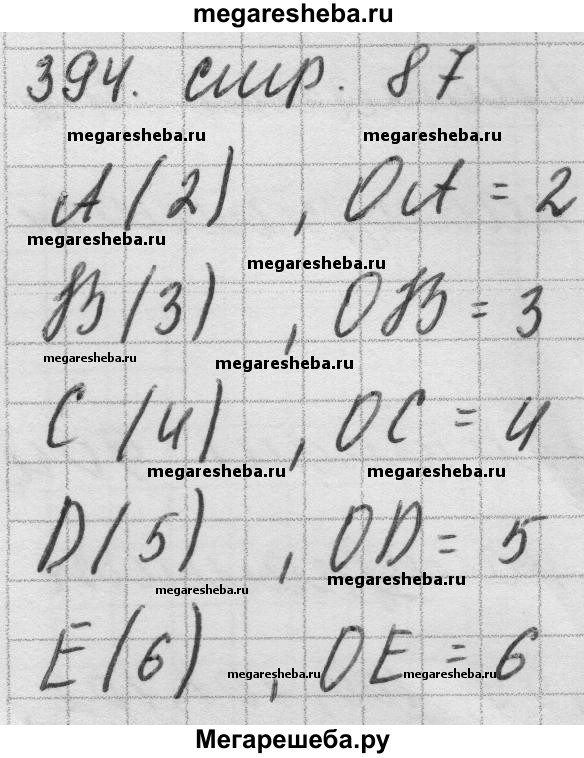 megaresheba.ru
394. стр. 87
megaresheba.ru megaresheba.ru
A(2), OA = 2
megaresheba.ru
megaresheba.ru
B(3), OB = 3
megaresheba.ru
megaresheba.ru
C(4), OC = 4
megaresheba.ru megaresheba.ru
D(5), OD = 5
megaresheba.ru
megaresheba.ru
E(6), OE = 6
megaresheba.ru megaresheba.ru
Мегарешеба.ру